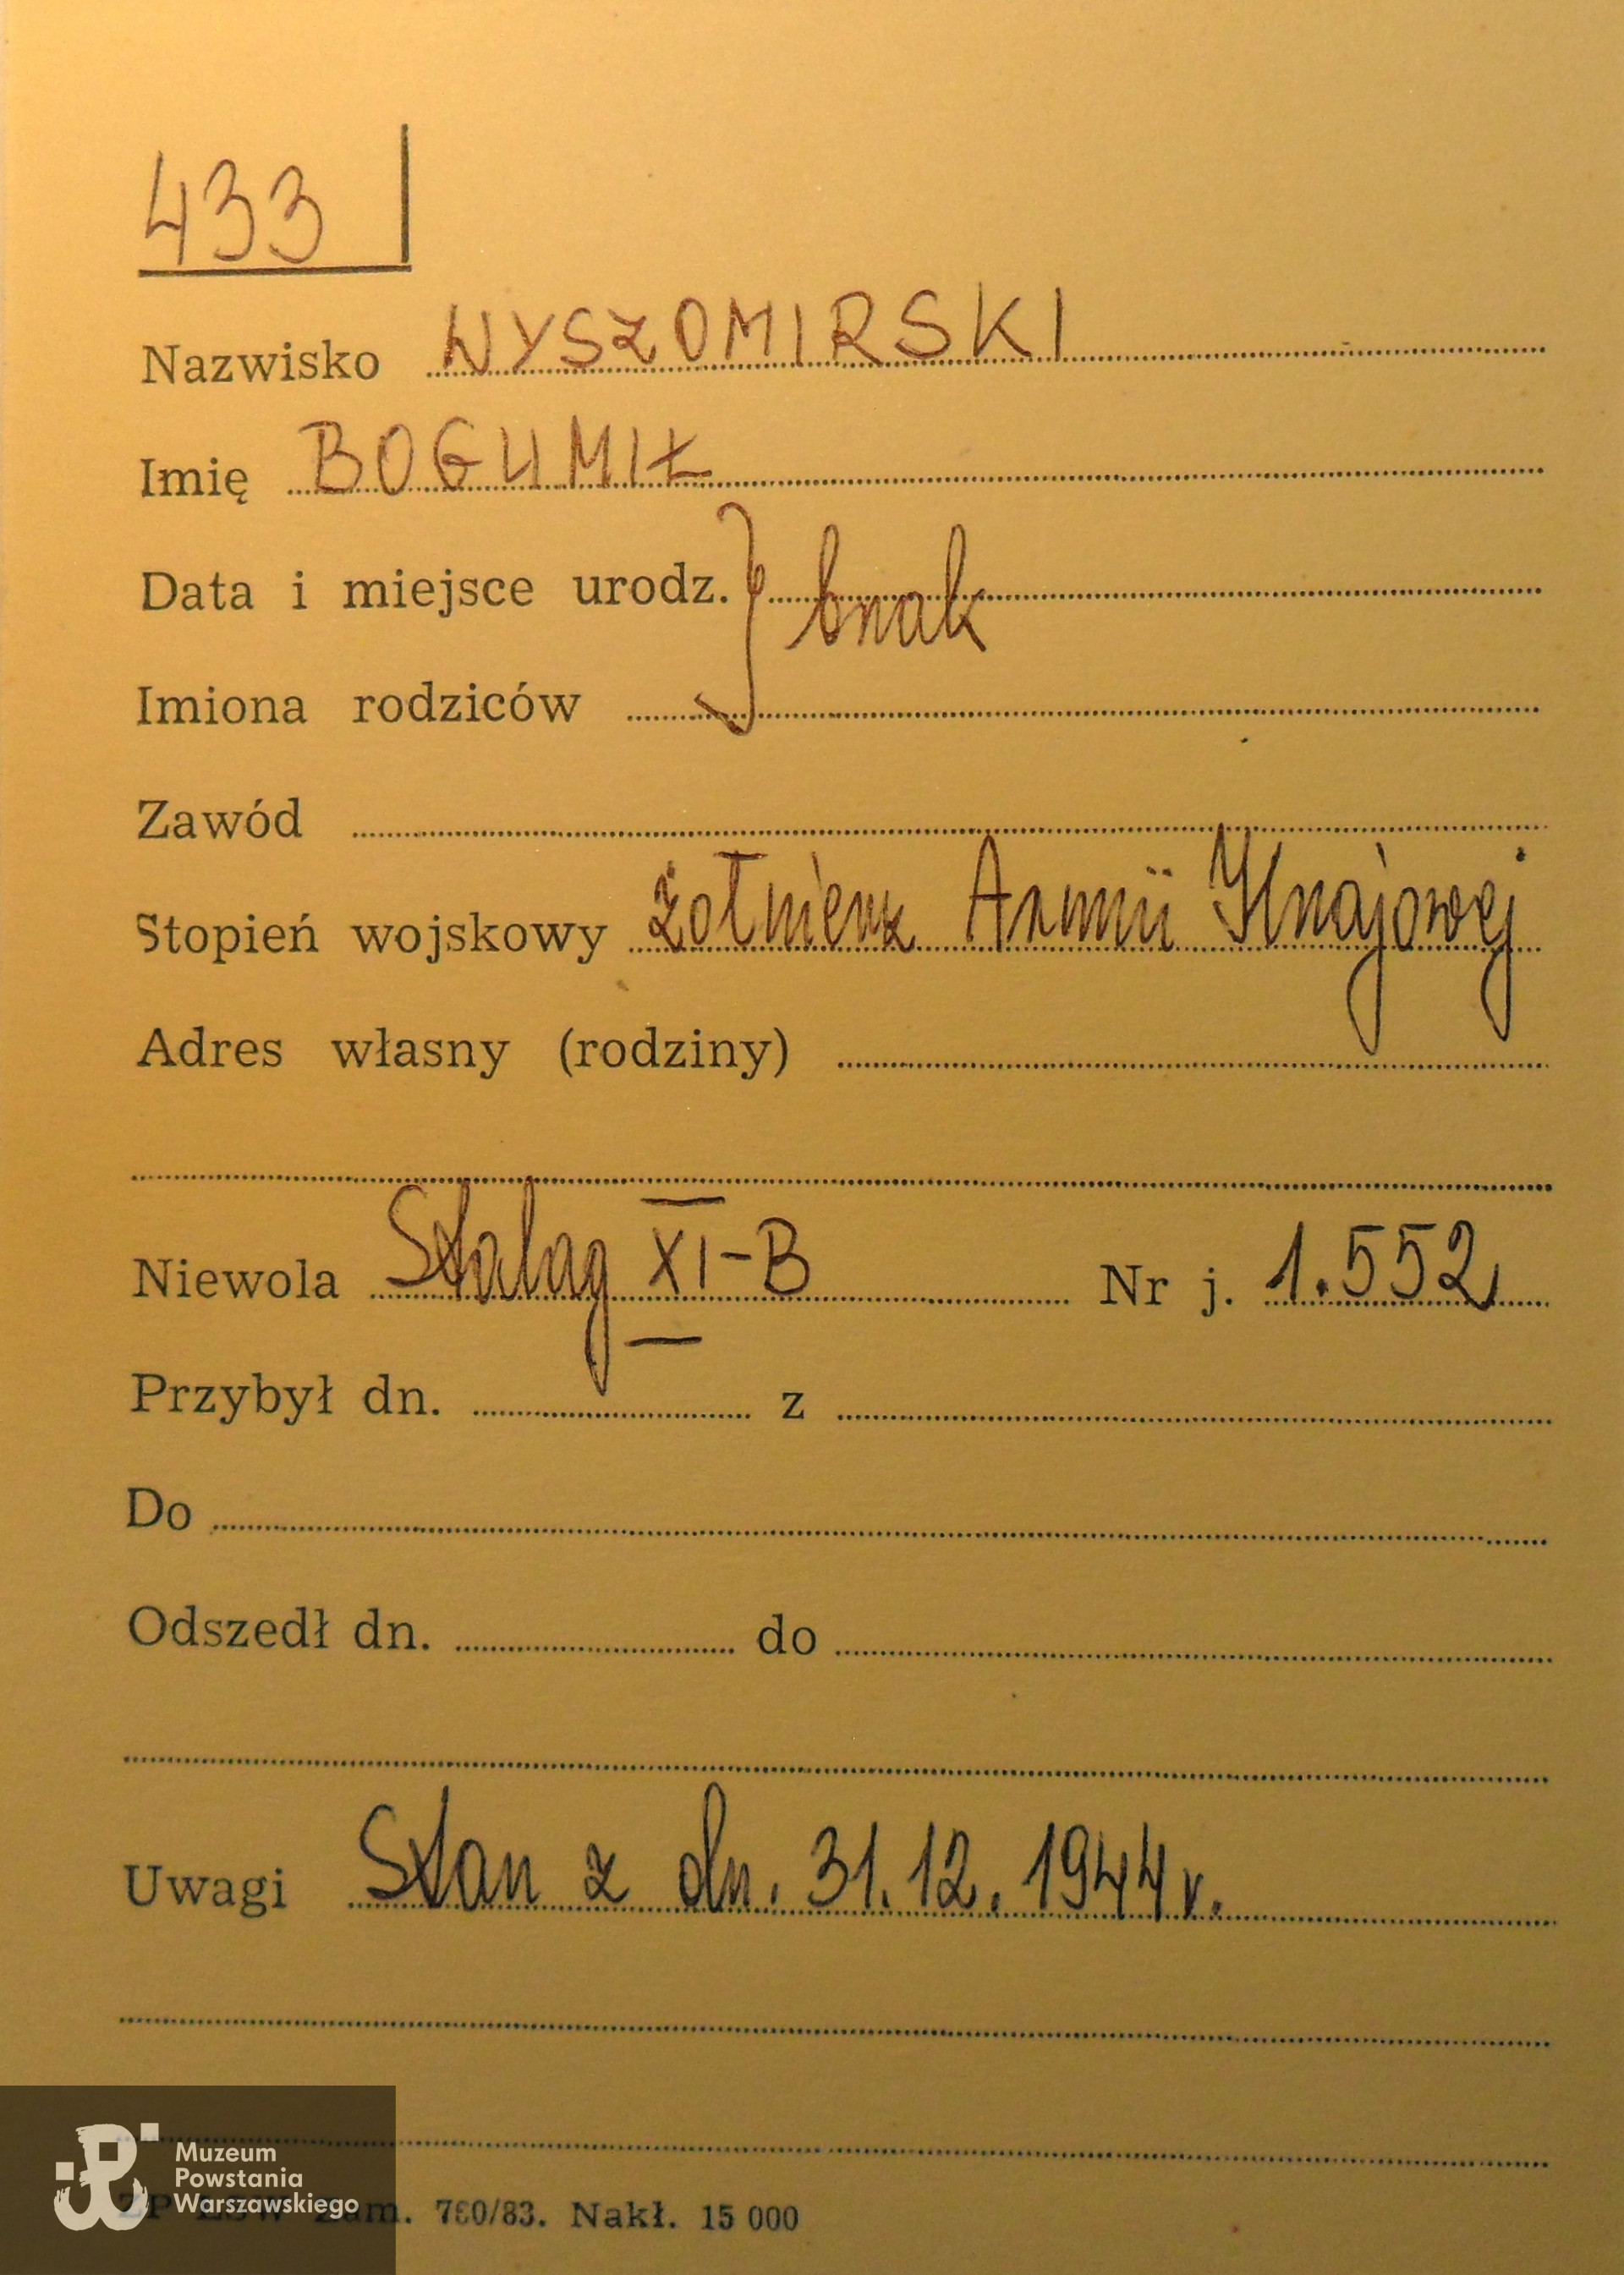 433
Nazwisko WYSZOMIRSKI
Imię BOGUMIŁ
Data i miejsce urodz. } brak
Imiona rodziców
Zawód
Stopień wojskowy żołnierz Armii Krajowej
Adres własny (rodziny)
Niewola Stalag XI-B Nr j. 1.552
Przybył dn. z
Do
Odszedł dn. do
Uwagi Stan z dn. 31.12.1944 r.
Muzeum
Powstania
Warszawskiego
Zam. 760/83. Nakł. 15 000